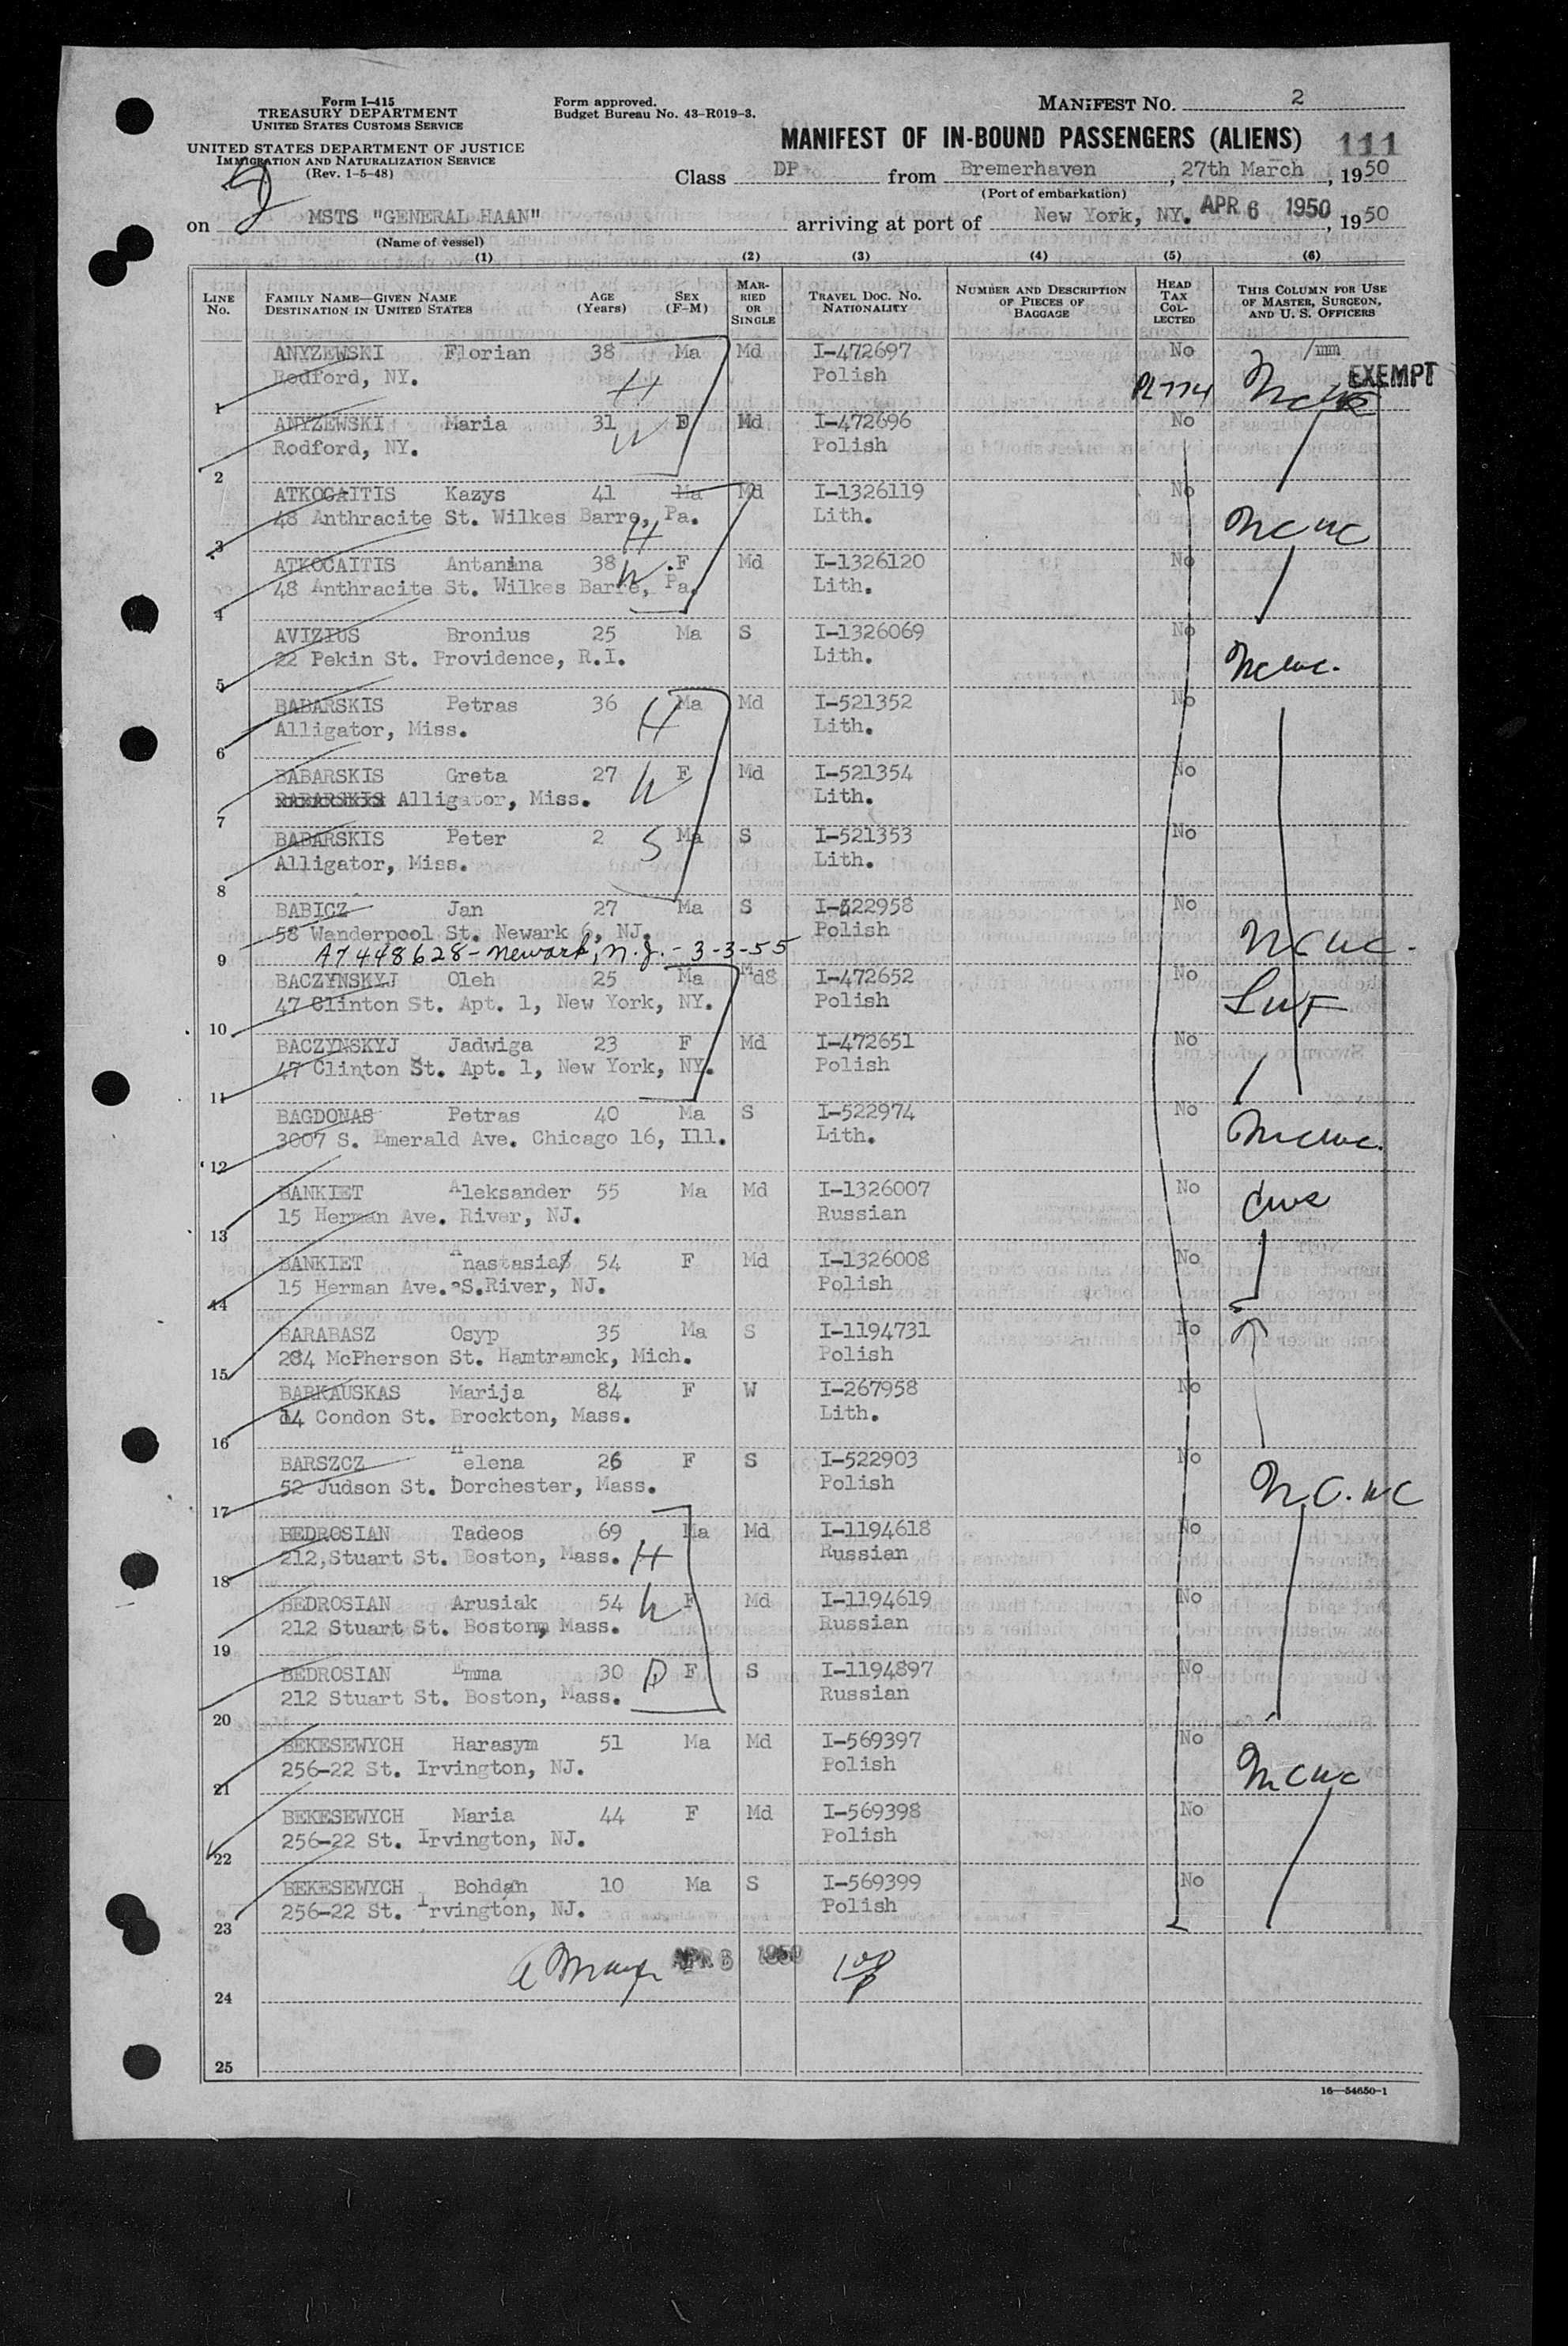 Form I-415
TREASURY DEPARTMENT
UNITED STATES CUSTOMS SERVICE
UNITED STATES DEPARTMENT OF JUSTICE
IMMIGRATION AND NATURALIZATION SERVICE
(Rev. 1-5-48)
Form approved.
Budget Bureau No. 43-R019-3.
MANIFEST NO. 2
MANIFEST OF IN-BOUND PASSENGERS (ALIENS) 111
Class DP from Bremerhaven, 27th March, 1950
(Port of embarkation)
on MSTS "GENERAL HAAN" arriving at port of New York, NY. APR 6 1950, 1950
(Name of vessel)
(1) (2) (3) (4) (5) (6)
LINE NO. FAMILY NAME—GIVEN NAME DESTINATION IN UNITED STATES AGE (Years) SEX (F-M) MARRIED OR SINGLE TRAVEL DOC. NO. NATIONALITY NUMBER AND DESCRIPTION OF PIECES OF BAGGAGE HEAD TAX COLLECTED THIS COLUMN FOR USE OF MASTER, SURGEON, AND U. S. OFFICERS
ANYZEWSKI Florian 38 Ma Md I-472697 No /mm
Rodford, NY. H Polish PL 774 NCWC EXEMPT
1
ANYZEWSKI Maria 31 W F Md I-472696 No
Rodford, NY. Polish
2
ATKOCAITIS Kazys 41 Ma Md I-1326119 No
48 Anthracite St. Wilkes Barre, Pa. H Lith. NCWC
3
ATKOCAITIS Antanina 38 W F Md I-1326120 No
48 Anthracite St. Wilkes Barre, Pa. Lith.
4
AVIZIUS Bronius 25 Ma S I-1326069 No
22 Pekin St. Providence, R.I. Lith. NCWC.
5
BABARSKIS Petras 36 H Ma Md I-521352 No
Alligator, Miss. Lith.
6
BABARSKIS Greta 27 W F Md I-521354 No
BABARSKIS Alligator, Miss. Lith.
7
BABARSKIS Peter 2 S Ma S I-521353 No
Alligator, Miss. Lith.
8
BABICZ Jan 27 Ma S I-522958 No
58 Wanderpool St. Newark 6, NJ. Polish NCWC.
9 A7448628 - Newark, N.J. - 3-3-55
BACZYNSKYJ Oleh 25 Ma MdS I-472652 No
47 Clinton St. Apt. 1, New York, NY. Polish LWF
10
BACZYNSKYJ Jadwiga 23 F Md I-472651 No
47 Clinton St. Apt. 1, New York, NY. Polish
11
BAGDONAS Petras 40 Ma S I-522974 No
3007 S. Emerald Ave. Chicago 16, Ill. Lith. NCWC.
12
BANKIET Aleksander 55 Ma Md I-1326007 No
15 Herman Ave. River, NJ. Russian CWS
13
BANKIET Anastasia 54 F Md I-1326008 No
15 Herman Ave. S.River, NJ. Polish
14
BARABASZ Osyp 35 Ma S I-1194731 No
284 McPherson St. Hamtramck, Mich. Polish
15
BARKAUSKAS Marija 84 F W I-267958 No
14 Condon St. Brockton, Mass. Lith.
16
BARSZCZ Helena 26 F S I-522903 No
52 Judson St. Dorchester, Mass. Polish N.C.WC
17
BEDROSIAN Tadeos 69 Ma Md I-1194618 No
212, Stuart St. Boston, Mass. H Russian
18
BEDROSIAN Arusiak 54 W F Md I-1194619 No
212 Stuart St. Boston, Mass. Russian
19
BEDROSIAN Emma 30 D F S I-1194897 No
212 Stuart St. Boston, Mass. Russian
20
BEKESEWYCH Harasym 51 Ma Md I-569397 No
256-22 St. Irvington, NJ. Polish NCWC
21
BEKESEWYCH Maria 44 F Md I-569398 No
256-22 St. Irvington, NJ. Polish
22
BEKESEWYCH Bohdan 10 Ma S I-569399 No
256-22 St. Irvington, NJ. Polish
23
APR 6 1950
24
25
16—54650-1